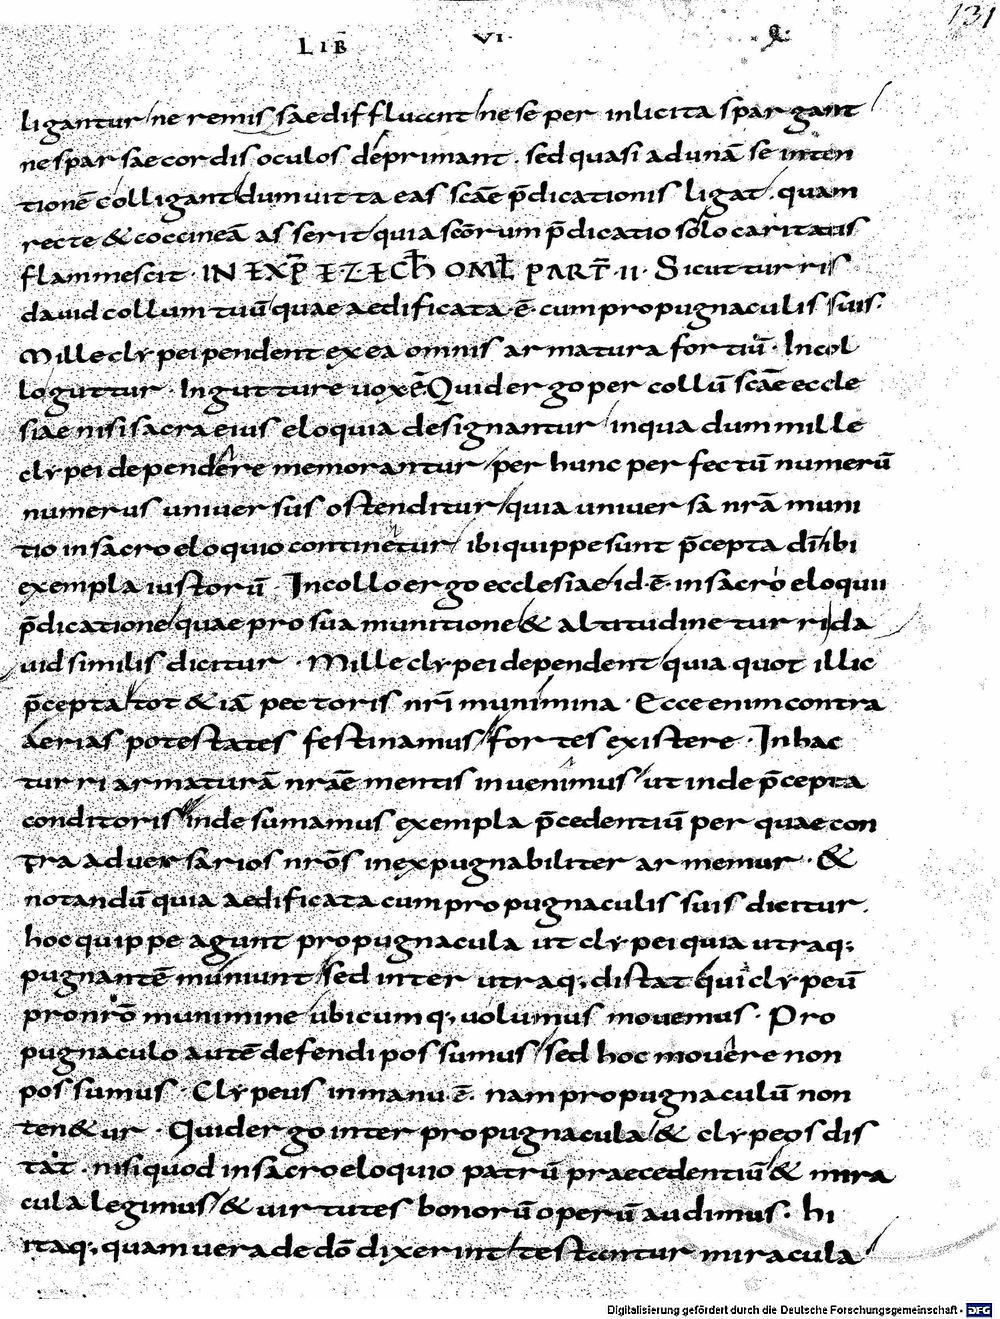 131
LIB̄ VI
ligantur ne remissae diffluant ne se per inlicita spargant
ne sparsae cordis oculos deprimant. sed quasi ad unā se inten
tionē colligant dum uitta eas scāe p̄dicationis ligat. quam
recte & coccineā asserit quia scōrum p̄dicatio solo caritatis
flammescit. IN EXP̄ EZECH̄ OML̄ PART̄ II. Sicut turris
dauid collum tuū quae aedificata .ē. cum propugnaculis suis.
Mille clypei pendent ex ea omnis armatura fortiū. In col
lo guttur. In gutture uox ē Quid ergo per collū scāe eccle
siae nisi sacra eius eloquia designantur in qua dum mille
clypei dependere memorantur per hunc perfectū numerū
numerus uniuersus ostenditur quia uniuersa nrā muni
tio in sacro eloquio continetur ibi quippe sunt p̄cepta dī ibi
exempla iustorū. In collo ergo ecclesiae id .ē. in sacro eloquii
p̄dicatione quae pro sua munitione & altitudine turri da
uid similis dicitur. Mille clypei dependent quia quot illic
p̄cepta tot & iā pectoris nrī munimina. Ecce enim contra
aerias potestates festinamus fortes existere. In hac
turri armaturā nrāe mentis inuenimus ut inde p̄cepta
conditoris inde sumamus exempla p̄cedentiū per quae con
tra aduersarios nrōs inexpugnabiliter armemur. &
notandū quia aedificata cum propugnaculis suis dicitur.
hoc quippe agunt propugnacula ut clypei quia utraq;
pugnantē muniunt sed inter utraq; distat qui clypeū
pro nrō munimine ubicumq; uolumus mouemus. Pro
pugnaculo autē defendi possumus sed hoc mouere non
possumus. Clypeus in manu .ē. nam propugnaculū non
ten&ur. Quid ergo inter propugnacula & clypeos dis
tat. nisi quod in sacro eloquio patrū praecedentiū & mira
cula legimus & uirtutes bonorū operū audimus. hi
itaq; quam uera de dō dixerint testantur miracula
Digitalisierung gefördert durch die Deutsche Forschungsgemeinschaft - DFG